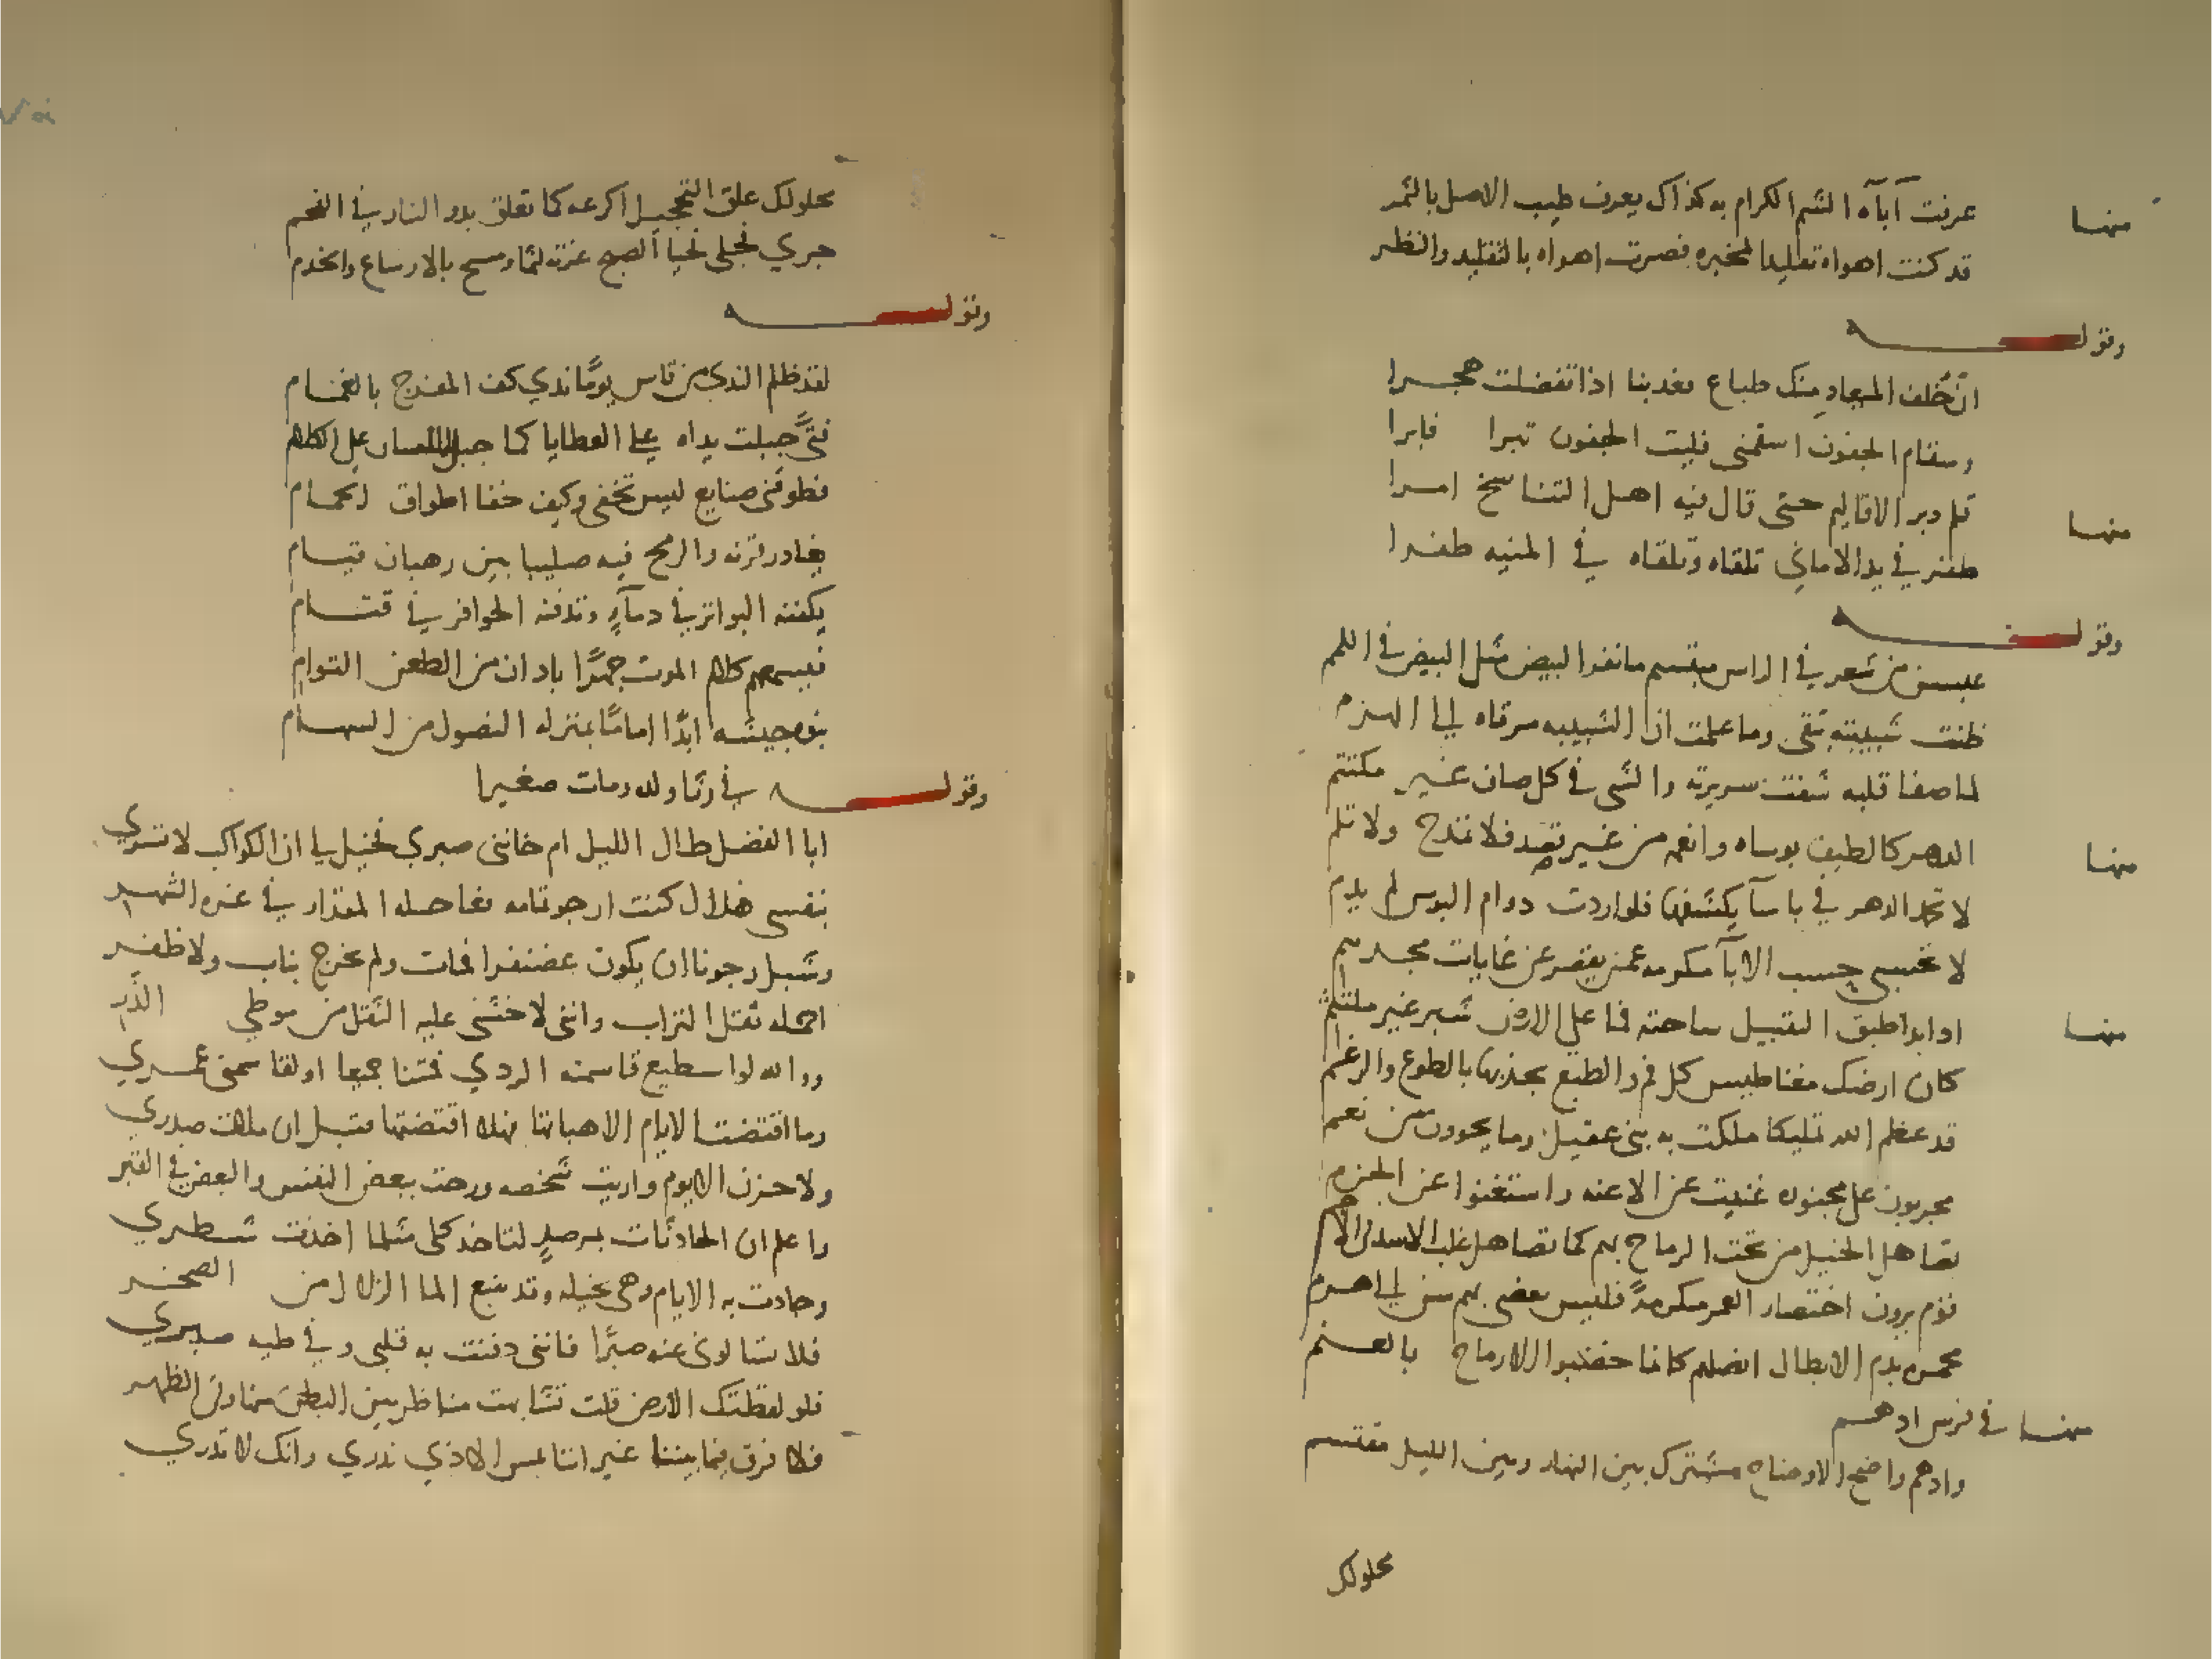 منها
عرفت آبآه الشم الكرام به كذاك يعرف طيب الاصل بالثمر
قد كنت اهواه تقليدا لمخبره فصرت اهواه بالتقليد والنظر
وقوله
ان خلف الميعاد منك طباع فعدينا اذا تفضلت هجرا
وسقام الجفون اسقمني فليت الجفون تبرا فابرا
منها
قلم دبر الاقاليم حتى قال فيه اهل التناسخ امرا
ظفر في يد الاماني تلقاه وتلقاه في المنيه ظفرا
وقوله
عبسن من شعر في الراس مبتسم ما نفر البيض مثل البيض في اللمم
ظنت شبيبته تبقى وما علمت ان الشبيبه مرقاه الى الهرم
لما صفا قلبه شفت سريرته والشي في كل صاف غير مكتتم
منها
الدهر كالطيف بوساه وانعمه من غير قصد فلا تمدح ولا تلم
لا تحمد الدهر في باسآ يكشفها فلو اردت دوام البوس لم يدم
لا تحسبي حسب الابآ مكرمه عمن يقصر عن غايات مجدهم
منها
اذا بدا طبق التقبيل ساحته فما على الارض شبر غير ملتثم
كان ارضك مغناطيس كل فم والطبع يجذبها بالطوع والرغم
قد عظم الله تمليكا ملكت به بني عقيل وما يحوون من نعم
مجربون على مجنونه غنيت عن الاعنه واستغنوا عن الحزم
تصاهل الخيل من تحت الرماح بهم كما تصاهل غلب الاسد في الاجم
قوم يرون اختصار العمر مكرمةً فليس يفضي بهم سن الى هرم
محمره بدم الابطال انصلهم كانما خضبوا الارماح بالعنم
منها في فرس ادهم
وادهم واضح الاوضاح مشترك بين النهار وبين الليل مقتسم
محلولك
محلولك علق التحجيل اكرعه كما تعلق بدو النار في الفحم
جرى نجلى لحيا الصبح غرته لثما ومسح بالارساغ والخدم
وقوله
لقد ظلم الندى من قاس يومًا ندي كف المفرج بالغمام
فتىً جبلت يداه على العطايا كما جبل اللسان على الكلام
فطوقني صنايع ليس تخفى وكيف خفا اطواق الحمام
يغادر قرنه والرمح فيه صليبا بين رهبان قيام
يكفنه البواتر في دمآيه وتدفنه الحوافر في قتام
فيسمعهم كلام الموت جهرًا باذان من الطعن التوام
يؤم جيشه ابدًا امامًا بمنزله النصول من السهام
وقوله في رثا ولد له ومات صغيرا
ابا الفضل طال الليل ام خانني صبري فخيل لي ان الكواكب لا تسري
بنفسي هلال كنت ارجو تمامه فعاجله المقدار في غره الشهر
وشبل رجونا ان يكون غضنفرا فمات ولم يجرح بناب ولا ظفر
احمله ثقل التراب وانني لاخشى عليه الثقل من موطي الذر
ووالله لو اسطيع قاسمته الردي فمتنا جميعا او لقاسمني عمري
وما اقتضت الايام الا هباتها فهلا اقتضتها قبل ان ملات صدري
ولا حزن الا يوم واريت شخصه ورحت ببعض النفس والبعض في القبر
واعلم ان الحادثات بمرصدٍ لتاخذ كلي مثلما اخذت شطري
وجادت به الايام وهي بخيله وقد ينبع الما الزلال من الصخر
فلا تسالوني عنه صبرًا فانني دفنت به قلبي وفي طيه صبري
فلو لفظتك الارض قلت تشابهت مناظر بين البطن منها وفي الظهر
فلا فرق فيما بيننا غير اننا بمس الاذي ندري وانك لا تدري